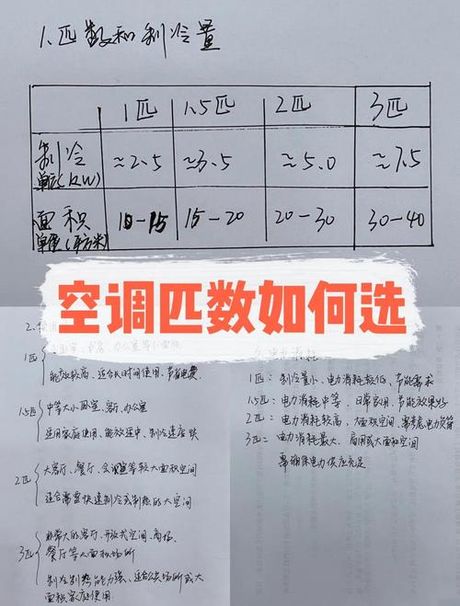 1.匹数和制冷量
1匹 1.5匹 2匹 3匹
制冷 ≈2.5 ≈3.5 ≈5.0 ≈7.5
单位(KW)
面积 10-15 15-20 20-30 30-40
单位(平方米)
空调匹数如何选
2.
1匹
能效较高、适合长时间使用、节省电费.
1.5匹 中等大小卧室、客厅、办公室
适用家庭使用、能效适中、制冷速度快
2匹 大客厅、餐厅、会议室等较大面积空间
适合需要快速制冷或制热的大空间
3匹 非常大的客厅、开放式空间、商场、
餐厅等大面积场所
制冷制热能力强、适合公共场所或大
面积家庭使用
1匹: 制冷量小、电力消耗较低、节能需求
1.5匹: 电力消耗中等、日常家用、节能效果好
2匹: 电力消耗较高、大面积空间、需考虑电力负荷
3匹: 电力消耗最大、商用或大面积空间
需确保电力供应充足